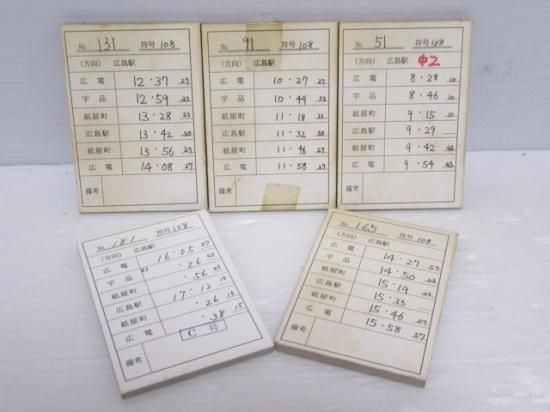 No. 131 符号 108
(方向) 広島駅
広電 12・37 27
宇品 12・59 23
紙屋町 13・28 23
広島駅 13・42 30
紙屋町 13・56 27
広電 14・08 27
備考
No. 91 符号 108
(方向) 広島駅
広電 10・27 27
宇品 10・49 23
紙屋町 11・18 23
広島駅 11・32 30
紙屋町 11・46 27
広電 11・58 27
備考
No. 51 符号 108
(方向) 広島駅 中2
広電 8・28 10
宇品 8・46 10
紙屋町 9・15 10
広島駅 9・29
紙屋町 9・42 43
広電 9・54 43
備考
No. 181 符号 108
(方向) 広島駅
広電 16・05 27
宇品 ・26 43
紙屋町 ・56 03
広島駅 17・12 15
紙屋町 ・26 15
広電 ・38 15
備考 C 号
No. 165 符号 108
(方向) 広島駅
広電 14・27 57
宇品 14・50 03
紙屋町 15・19 03
広島駅 15・33
紙屋町 15・46 27
広電 15・58 57
備考